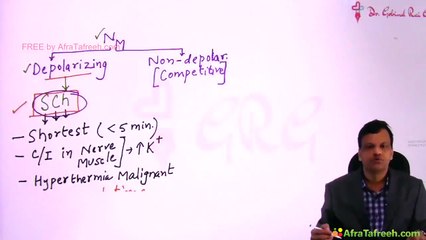 FREE by AfraTafreeh.com
✓ NM
Dr. Gobind Rai G
✓ Depolarizing
Non-depolar.
[Competitive]
✓ SCh
GRG
- Shortest (<5 min.)
- C/I in Nerve Muscle] → ↑K+
- Hyperthermia Malignant
AfraTafreeh.com